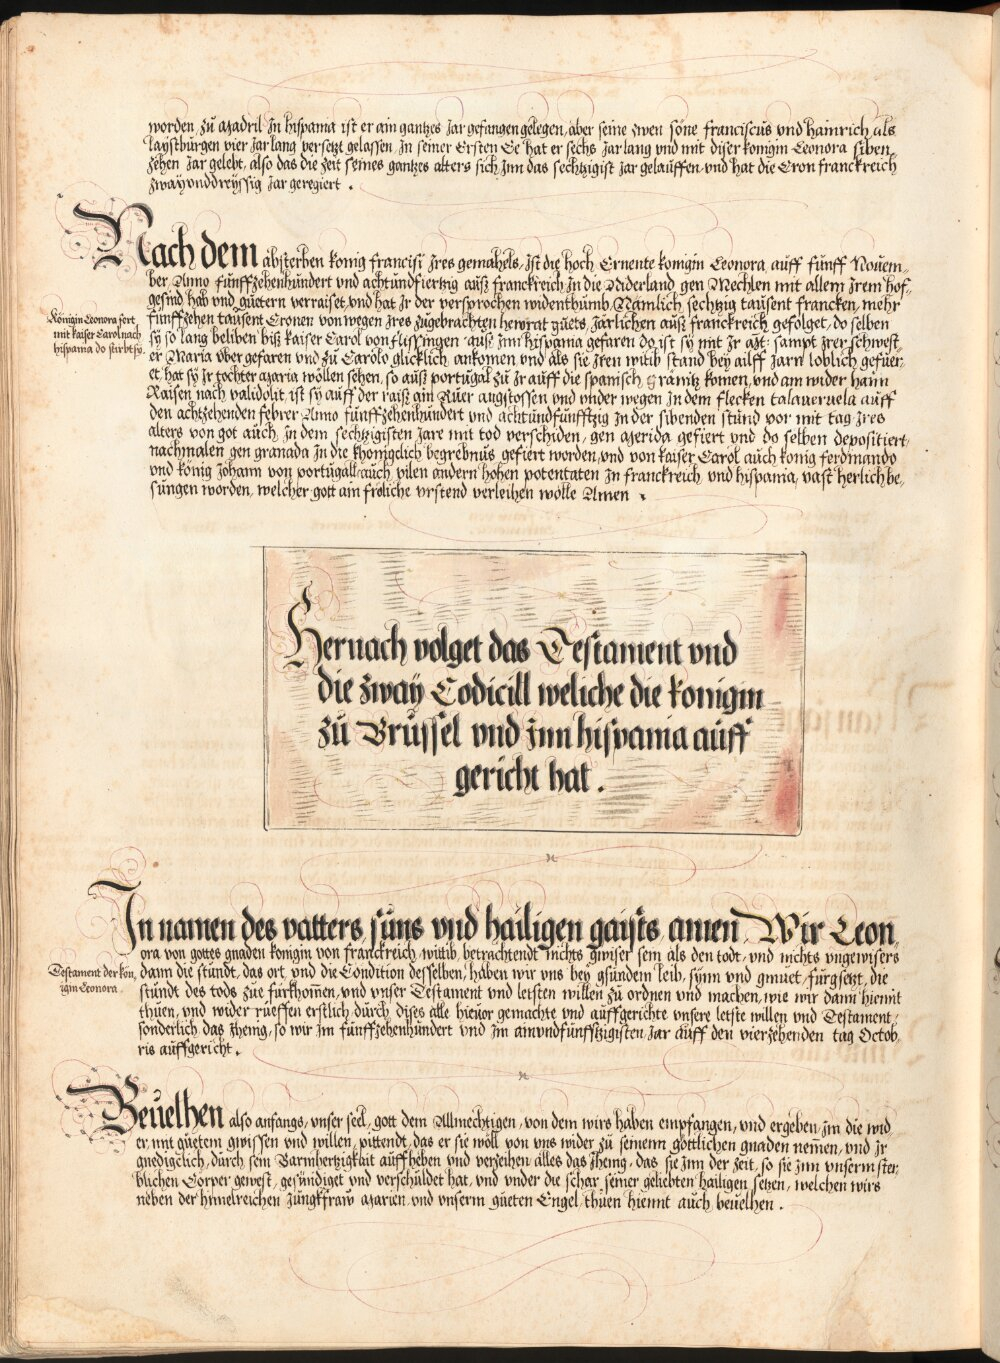 worden, zů Madril In hispania ist er ain gantzes Jar gefangen gelegen, aber seine zwen söne franciscus vnd hainrich, als
laystbürgen vier Jar lang versetzt gelassen, In seiner Ersten Ee hat er sechs Jar lang vnd mit diser königin Leonora siben,
zehen Jar gelebt, also das die zeit seines gantzes alters sich Inn das sechtzigist Jar gelauffen, vnd hat die Cron franckreich
zwayvnddreyssig Jar geregiert .
Nach dem absterben könig francisi Ires gemahels, Ist die hoch Ernente königin Leonora, auff fünff Nouem,
ber, Anno fünffzehenhündert vnd achtundfiertzig auß franckreich In die Niderland gen Mechlen mit allem Irem hof,
gesind hab vnd güetern verraiset, vnd hat Ir der versprochen widenthumb, Nämlich sechtzig taüsent francken, mehr
fünffzehen taüsent Cronen von wegen Ires zügebrachten heyrat güets, Järlichen auß franckreich gefölget, do selben
Königin Leonora fert
mit kaiser Carol nach
hispania do stirbt sy.
sy so lang beliben biß kaiser Carol von flissingen auß Inn hispania gefaren do ist sy mit Ir Mt: sampt Irer schwest,
er Maria über gefaren vnd zů Carölo glicklich ankomen vnd als sie Iren witib stand bey ailff Jarn loblich gefüer,
et, hat sy Ir tochter Maria wöllen sehen, so auß portugal zů Ir auff die spanisch gränitz komen, vnd am wider haim
Raisen nach validolit, ist sy auff der raiß ain Ruer angstossen vnd vnder wegen In dem flecken talaueruela auff
den achtzehenden febrer Anno fünffzehenhündert vnd achtundfünfftzig In der sibenden stünd vor mit tag Ires
alters von got auch In dem sechtzigisten Jare mit tod verschiden, gen Merida gefiert vnd do selben depositiert,
nachmalen gen granada In die königclich begrebnüs gefiert worden, vnd von kaiser Carol auch könig ferdinando
vnd könig Johann von portugall auch vilen andern hohen potentaten In franckreich vnd hispania, vast herlich be,
sungen worden, welcher gott ain fröliche vrstend verleihen wölle Amen .
Hernach volget das Testament vnd
die zway Codicill weliche die königin
zů Brüssel vnd Inn hispania auff
gericht hat .
In namen des vatters, süns vnd hailigen gaists amen, Wir Leon,
ora von gottes gnaden königin von franckreich, wittib, betrachtendt nichts gwiser sein als den todt, vnd nichts vngewisers
Testament der kön,
igin Leonora .
dann die stündt, das ort, vnd die Condition desselben, haben wir vns bey gsündem leib, synn vnd gmüet, fürgsetzt, die
stündt des tods zue fürkhomen, vnd vnser Testament vnd letsten willen zů ordnen vnd machen, wie wir dann hiemit
thüen, vnd wider rüeffen erstlich dürch dises alle hieuor gemachte vnd auffgerichte vnsere letste willen vnd Testament,
sonderlich das Ihenig, so wir Im fünffzehenhündert vnd Im ainvndfünfftzigisten Jar auff den vierzehenden tag Octob,
ris auffgericht .
Beuelhen also anfangs, vnser seel, gott dem Allmechtigen, von dem wirs haben empfangen, vnd ergeben Im die wid,
er, mit güetem gwissen vnd willen, pittendt, das er sie wöll von vns wider zů seinenn göttlichen gnaden nemen, vnd Ir
gnedigclich, dürch sein Barmhertzigkait auffheben vnd verzeihen alles das Ihenig, das sie Inn der zeit, so sie Inn vnserm ster,
blichen Cörper gewest, gesündiget vnd verschüldet hat, vnd vnder die schar, seiner geliebten hailigen setzen, welchen wirs
neben der himelreichen Jüngkfraw Marien, vnd vnserm güeten Engel, thüen hiemit auch beuelhen .